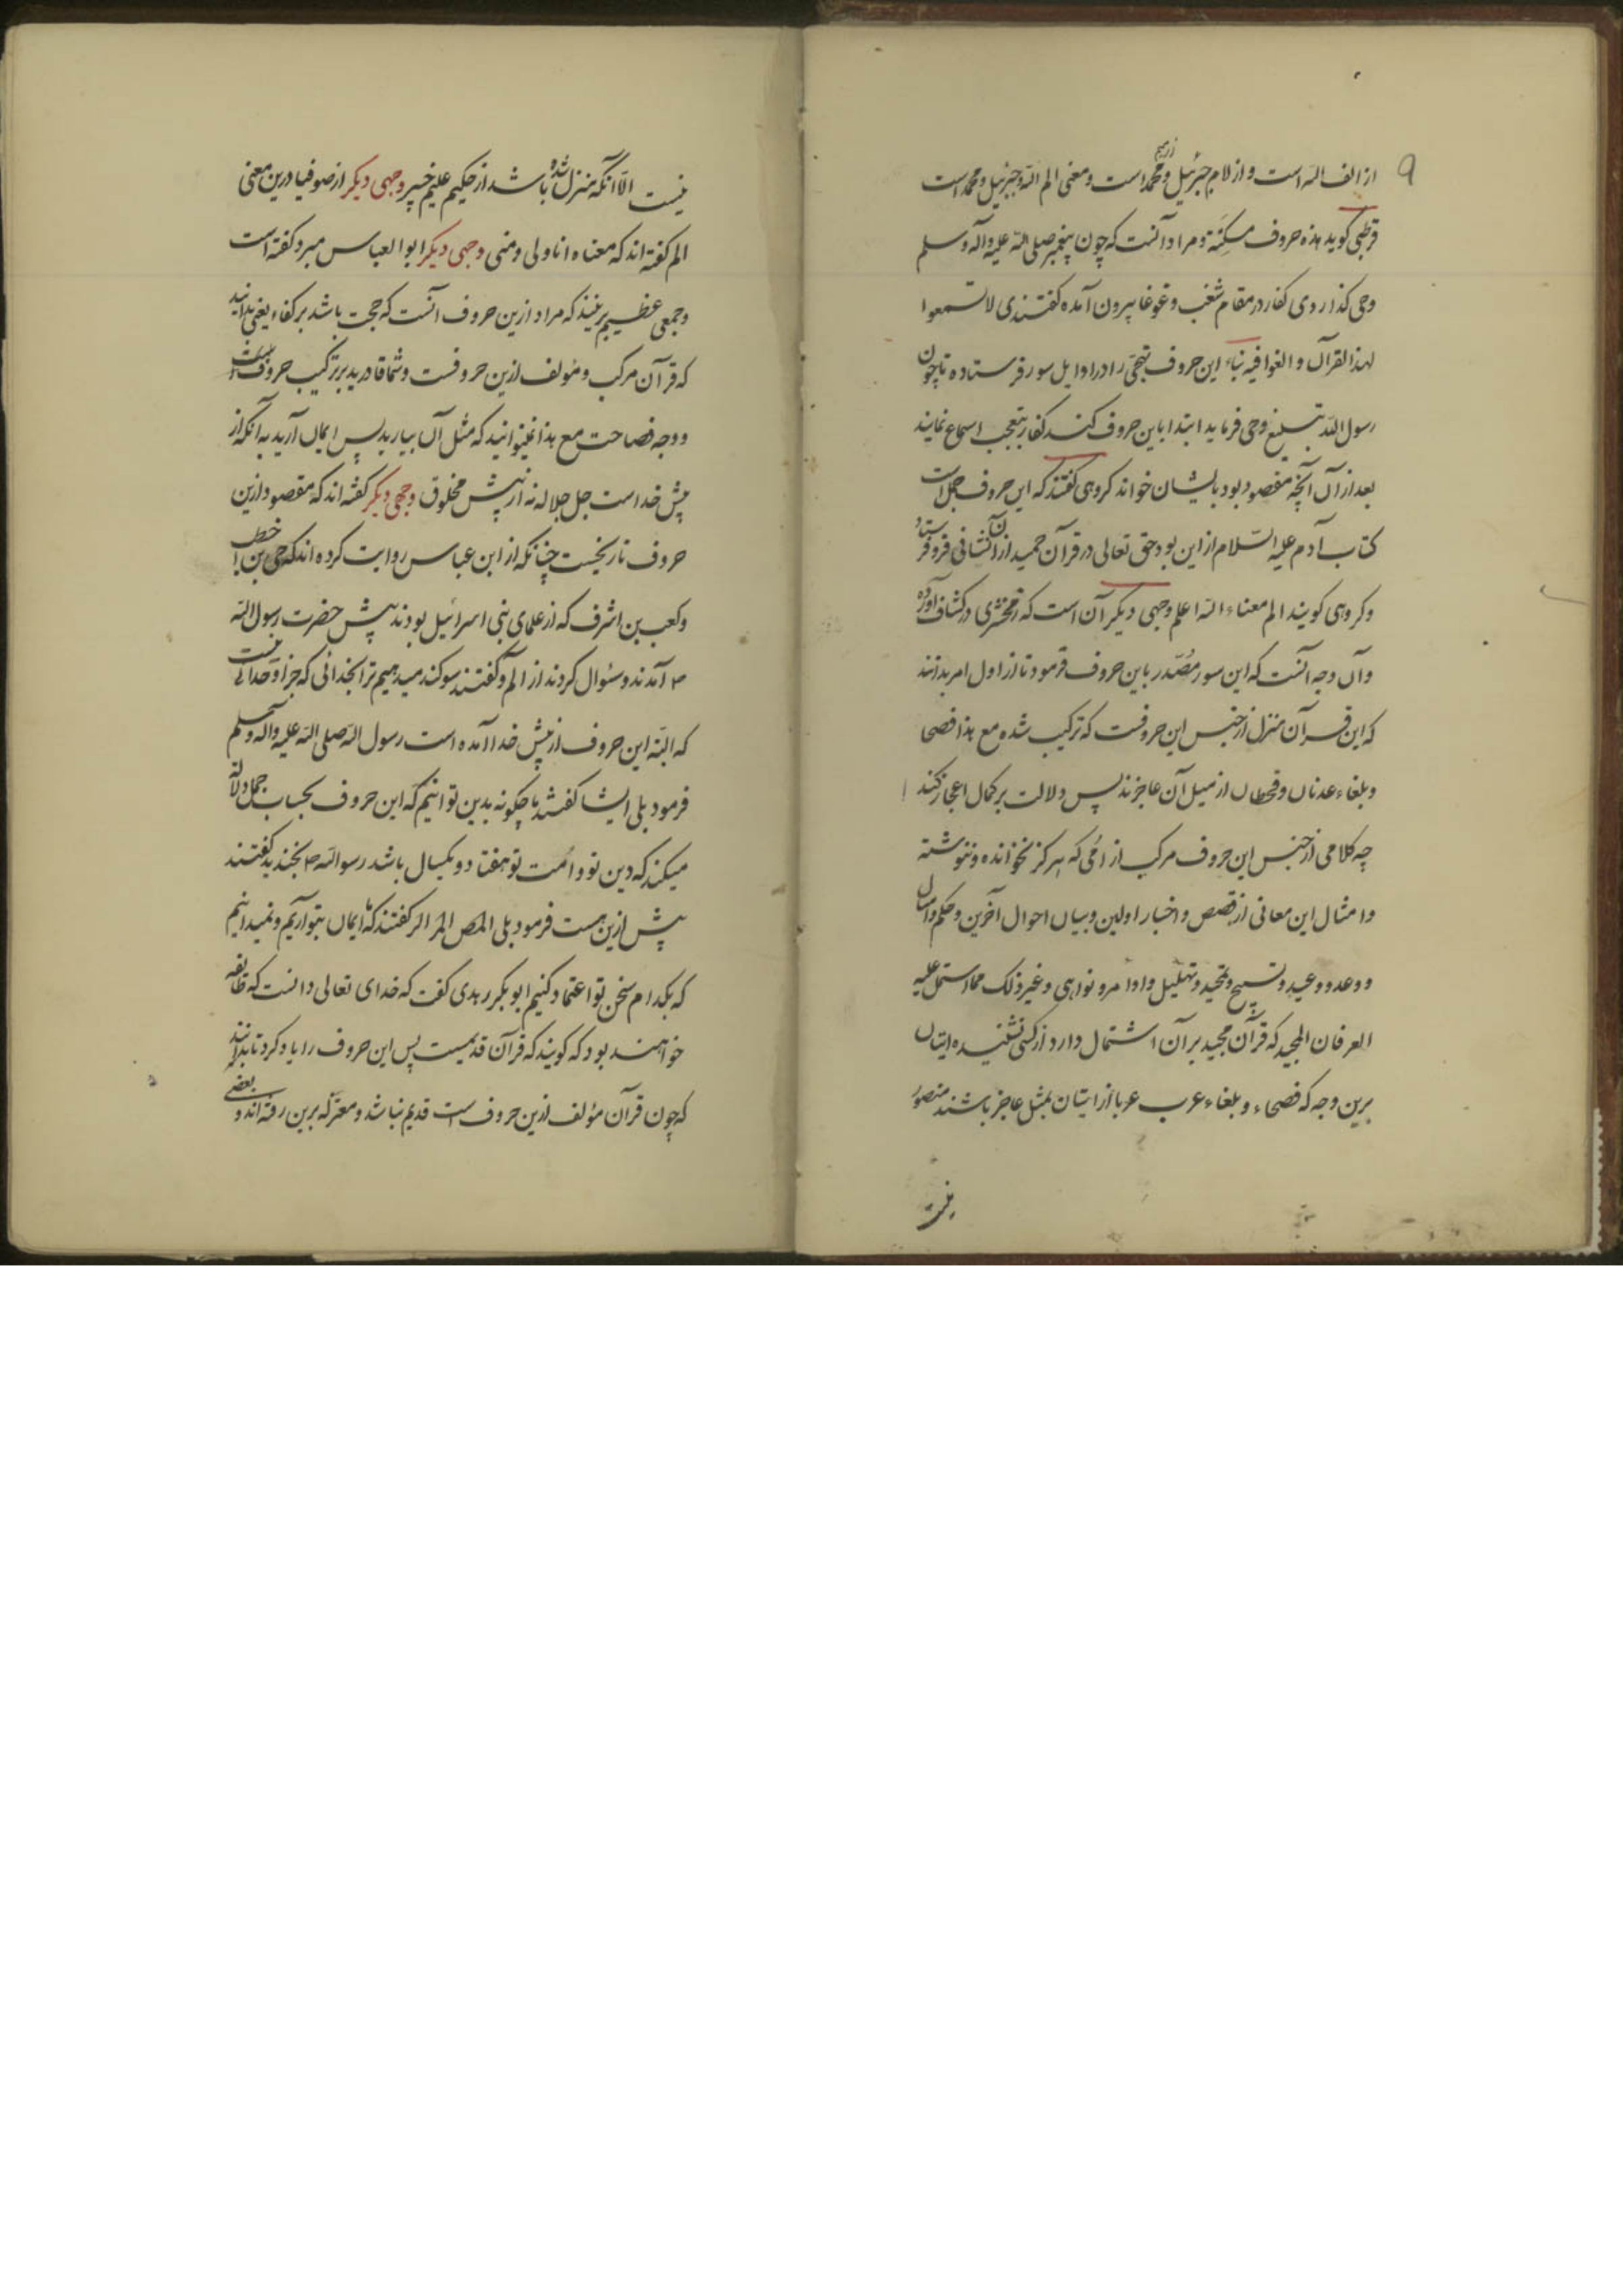 ۹
از الف الله است و از لام جبرئیل و از میم محمد است و معنی الم الله و جبرئیل و محمد است
قرطبی کوید هذه حروف مسکتة و مراد آنست که چون پیغمبر صلی الله علیه و آله وسلم
وحی کذاردی کفار در مقام شغب و غوغا بیرون آمده کفتندی لا تسمعوا
لهذا القرآن و الغوا فیه بناء این حروف تهجی را در اوایل سور فرستاده تا چون
رسول الله تبلیغ وحی فرماید ابتدا باین حروف کند کفار بتعجب اسماع نمایند
بعد از آن آنچه مقصود بود بایشان خواند کروهی کفتند که این حروف جمل است
کتاب آدم علیه السلام از این بود حق تعالی در قرآن حمید از آن نشانی فرو فرستاد
و کروهی کویند الم معناه الله اعلم وجهی دیکر آن است که زمخشری در کشاف آورده
و آن وجه آنست که این سور مصدر باین حروف فرمود تا از اول امر بدانند
که این قرآن منزل از جنس این حروفست که ترکیب شده مع هذا فصحا
و بلغاء عدنان و قحطان از مثل آن عاجزند پس دلالت بر کمال اعجاز کند
چه کلامی از جنس این حروف مرکب از امی که هرکز نخوانده و ننوشته
و امثال این معانی از قصص و اخبار اولین و بیان احوال آخرین و حکم و امثال
و وعد و وعید و تسبیح و تمجید و تهلیل و اوامر و نواهی و غیر ذلک مما اشتمل علیه
الفرقان المجید که قرآن مجید بر آن اشتمال دارد از کسی نشنیده اتیان
برین وجه که فصحاء و بلغاء عرب عربا از اتیان بمثل عاجز باشند متصور
نیست
نیست الا آنکه منزل شده باشد از حکیم علیم خبیر وجهی دیکر از صوفیا درین معنی
الم کفته اند که معناه انا ولی و منی وجهی دیکر ابوالعباس مبرد کفته است
و جمعی عظیم برینند که مراد ازین حروف آنست که حجت باشد بر کفار یعنی بدانید
که قرآن مرکب و مؤلف ازین حروفست و شما قادرید بر ترکیب حروف
و وجه فصاحت مع هذا نمیتوانید که مثل آن بیارید پس ایمان آرید به آنکه از
پیش خداست جل جلاله نه از پیش مخلوق وجهی دیکر کفته اند که مقصود ازین
حروف تاریخست چنانکه از ابن عباس روایت کرده اند که حی بن اخطب
و کعب بن اشرف که از علمای بنی اسرائیل بودند پیش حضرت رسول الله
ص آمدند و سئوال کردند از الم و کفتند سوکند میدهیم ترا بخدائی که جز او خدائی نیست
که البته این حروف از پیش خدا آمده است رسول الله صلی الله علیه و آله وسلم
فرمود بلی ایشان کفتند ما چکونه بدین تو آئیم که این حروف بحساب جمل دلالة
میکند که دین تو و امت تو هفتاد و یکسال باشد رسول الله ص بخندید کفتند
پیش ازین هست فرمود بلی المص المر الر کفتند که ما ایمان بتو آریم و نمیدانیم
که بکدام سخن تو اعتماد کنیم ابوبکر زبدی کفت که خدای تعالی دانست که طایفه
خواهند بود که کویند که قرآن قدیمست پس این حروف را یاد کرد تا بدانند
که چون قرآن مؤلف ازین حروف است قدیم نباشد و معتزله برین رفته اند و بعضی